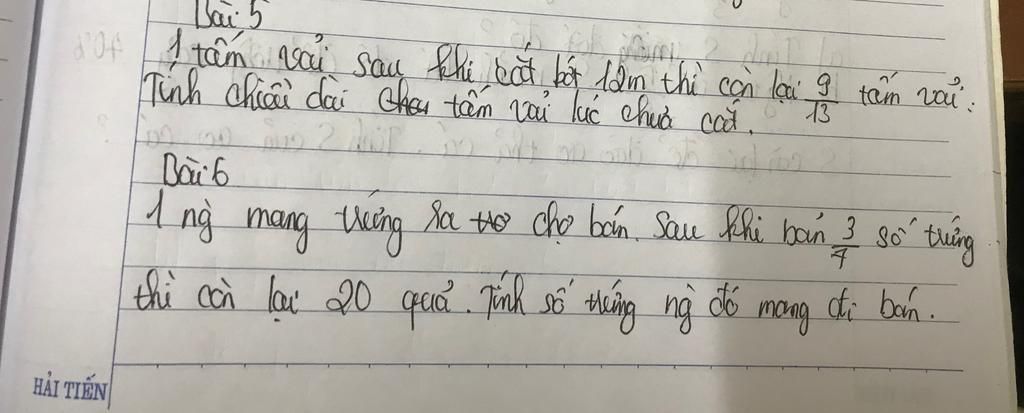 Bài 5
1 tấm vải sau khi cắt bớt 12m thì còn lại 9/13 tấm vải.
Tính chiều dài tấm vải lúc chưa cắt.
Bài 6
1 ng̀ mang trứng ra chợ bán. Sau khi bán 3/7 số trứng
thì còn lại 20 quả. Tính số trứng ng̀ đó mang đi bán.
HẢI TIẾN